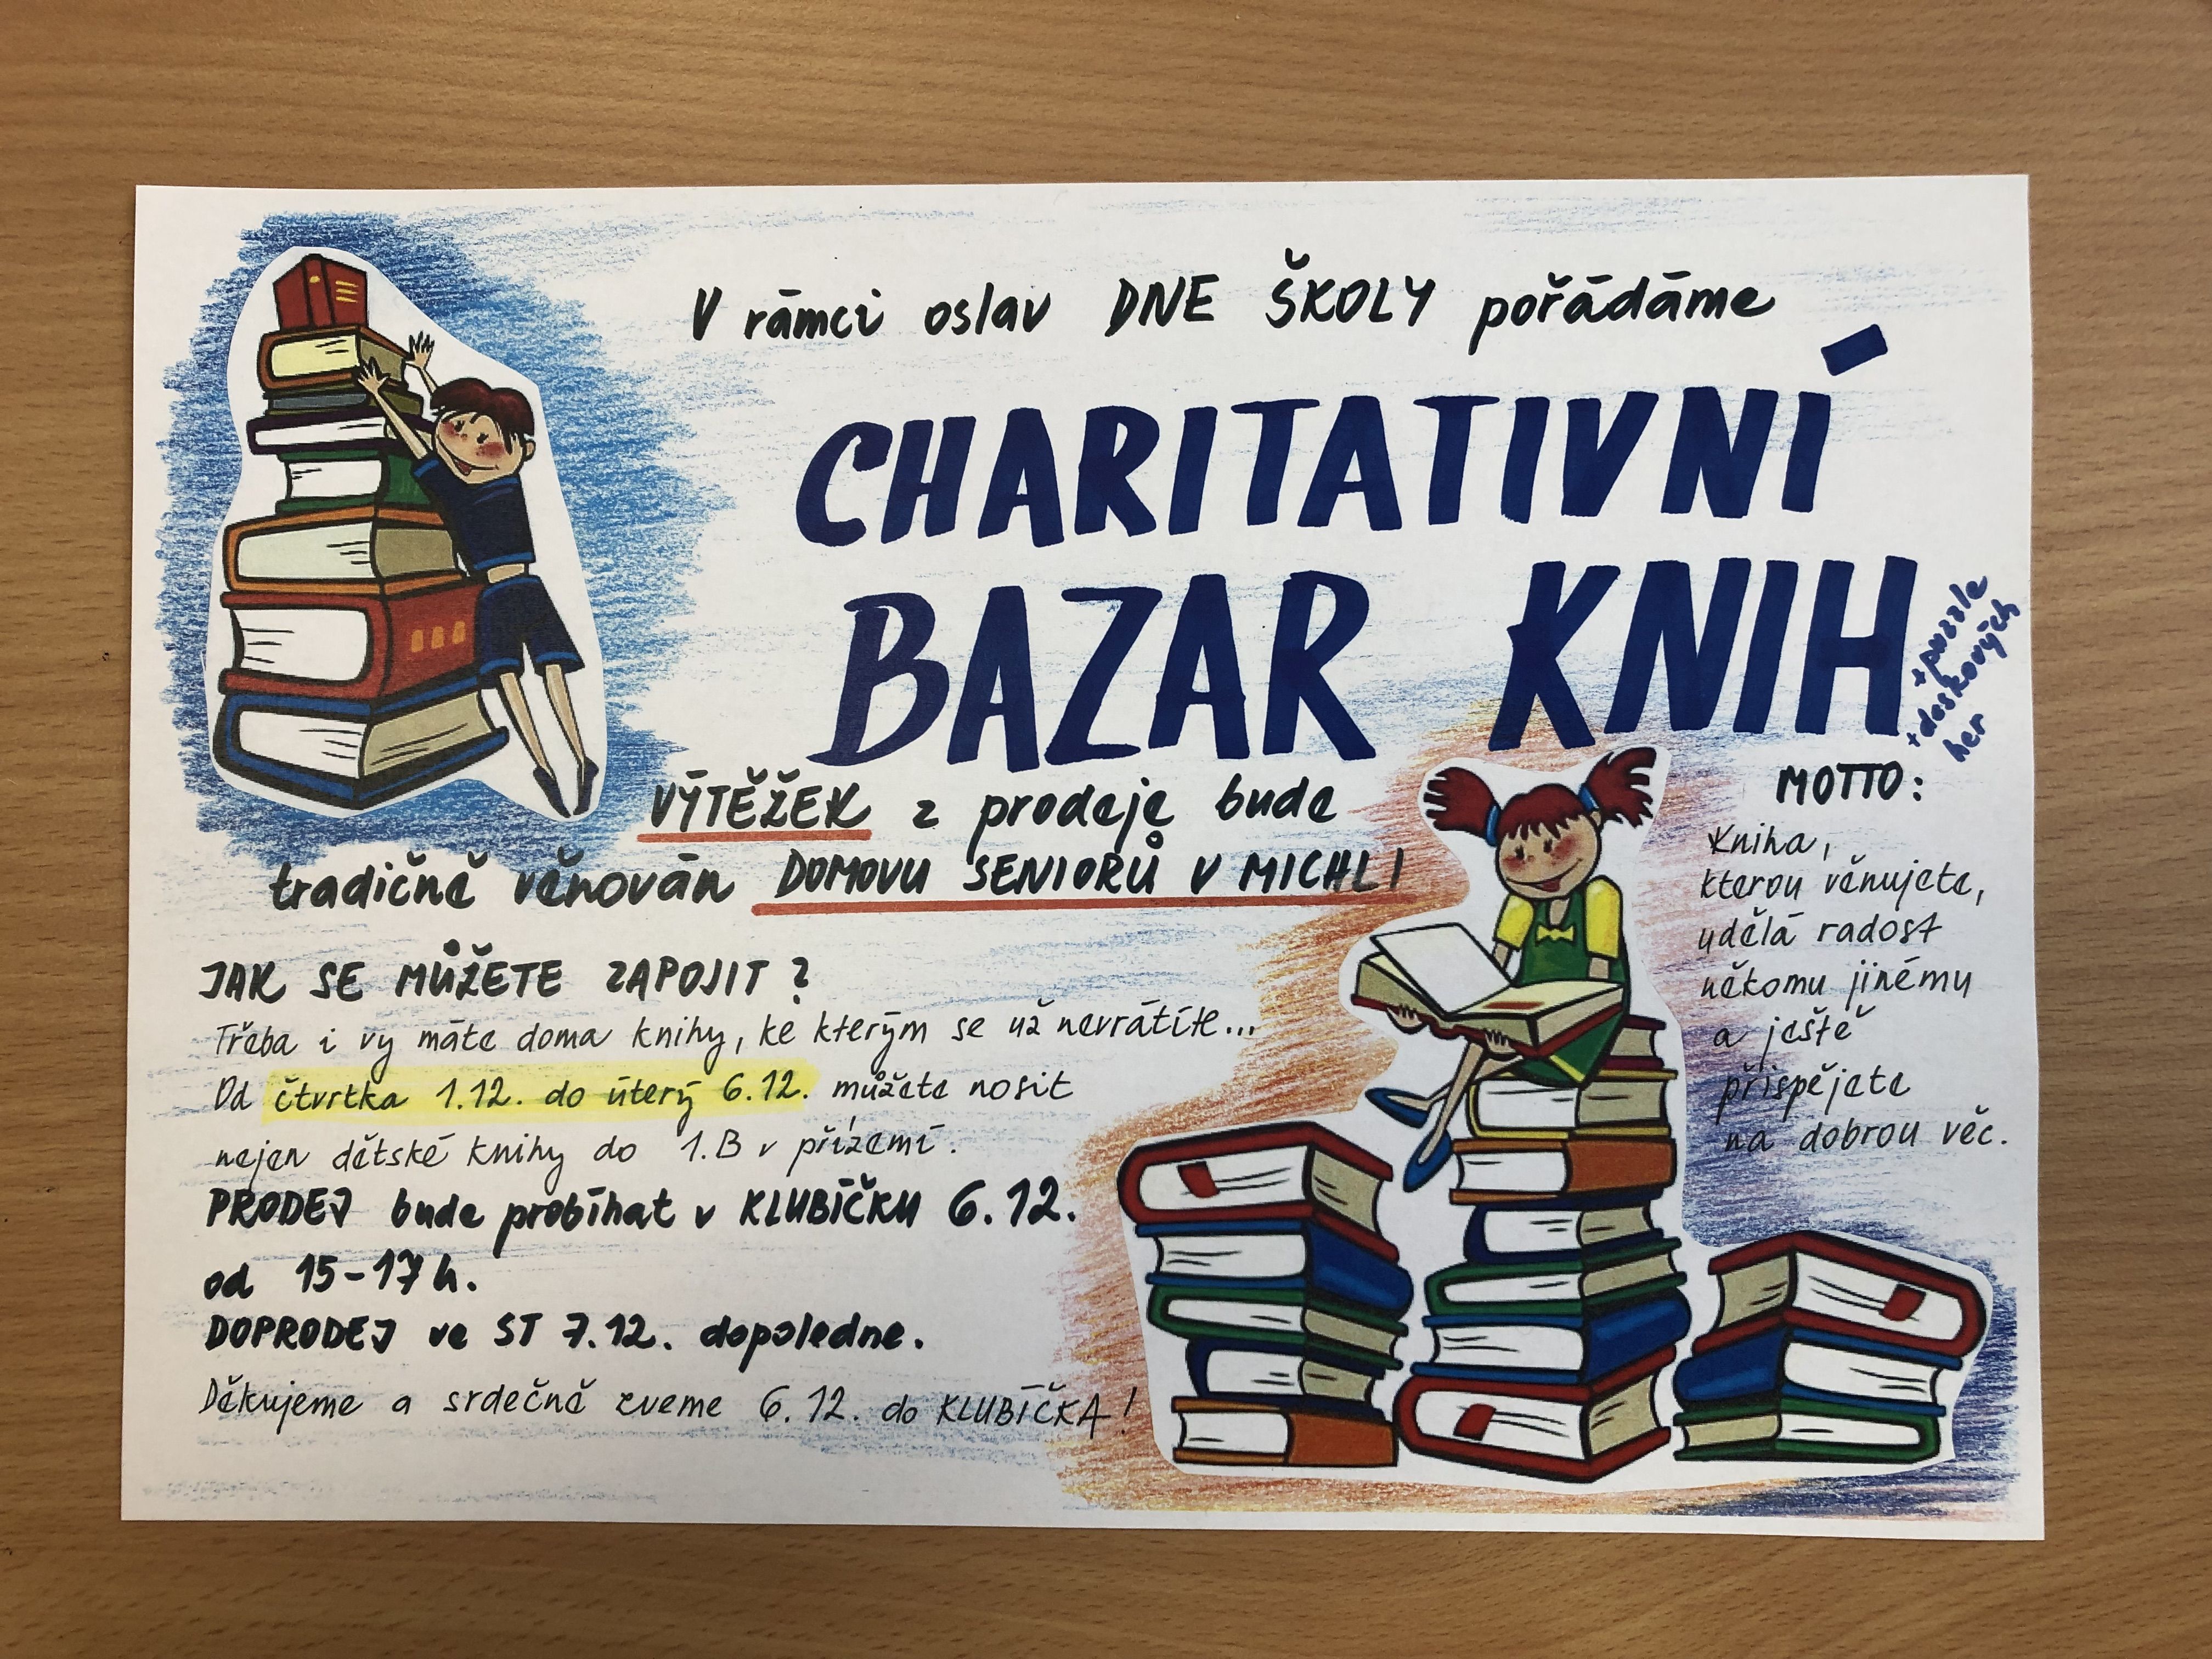 V rámci oslav DNE ŠKOLY pořádáme
CHARITATIVNÍ
BAZAR KNIH
+ puzzle
+ deskových
her
VÝTĚŽEK z prodeje bude
tradičně věnován DOMOVU SENIORŮ V MICHLI
JAK SE MŮŽETE ZAPOJIT?
Třeba i vy máte doma knihy, ke kterým se už nevrátíte...
Od čtvrtka 1.12. do úterý 6.12. můžete nosit
nejen dětské knihy do 1.B v přízemí.
PRODEJ bude probíhat v KLUBÍČKU 6.12.
od 15-17 h.
DOPRODEJ ve ST 7.12. dopoledne.
Děkujeme a srdečně zveme 6.12. do KLUBÍČKA!
MOTTO:
Kniha,
kterou věnujete,
udělá radost
někomu jinému
a ještě
přispějete
na dobrou věc.